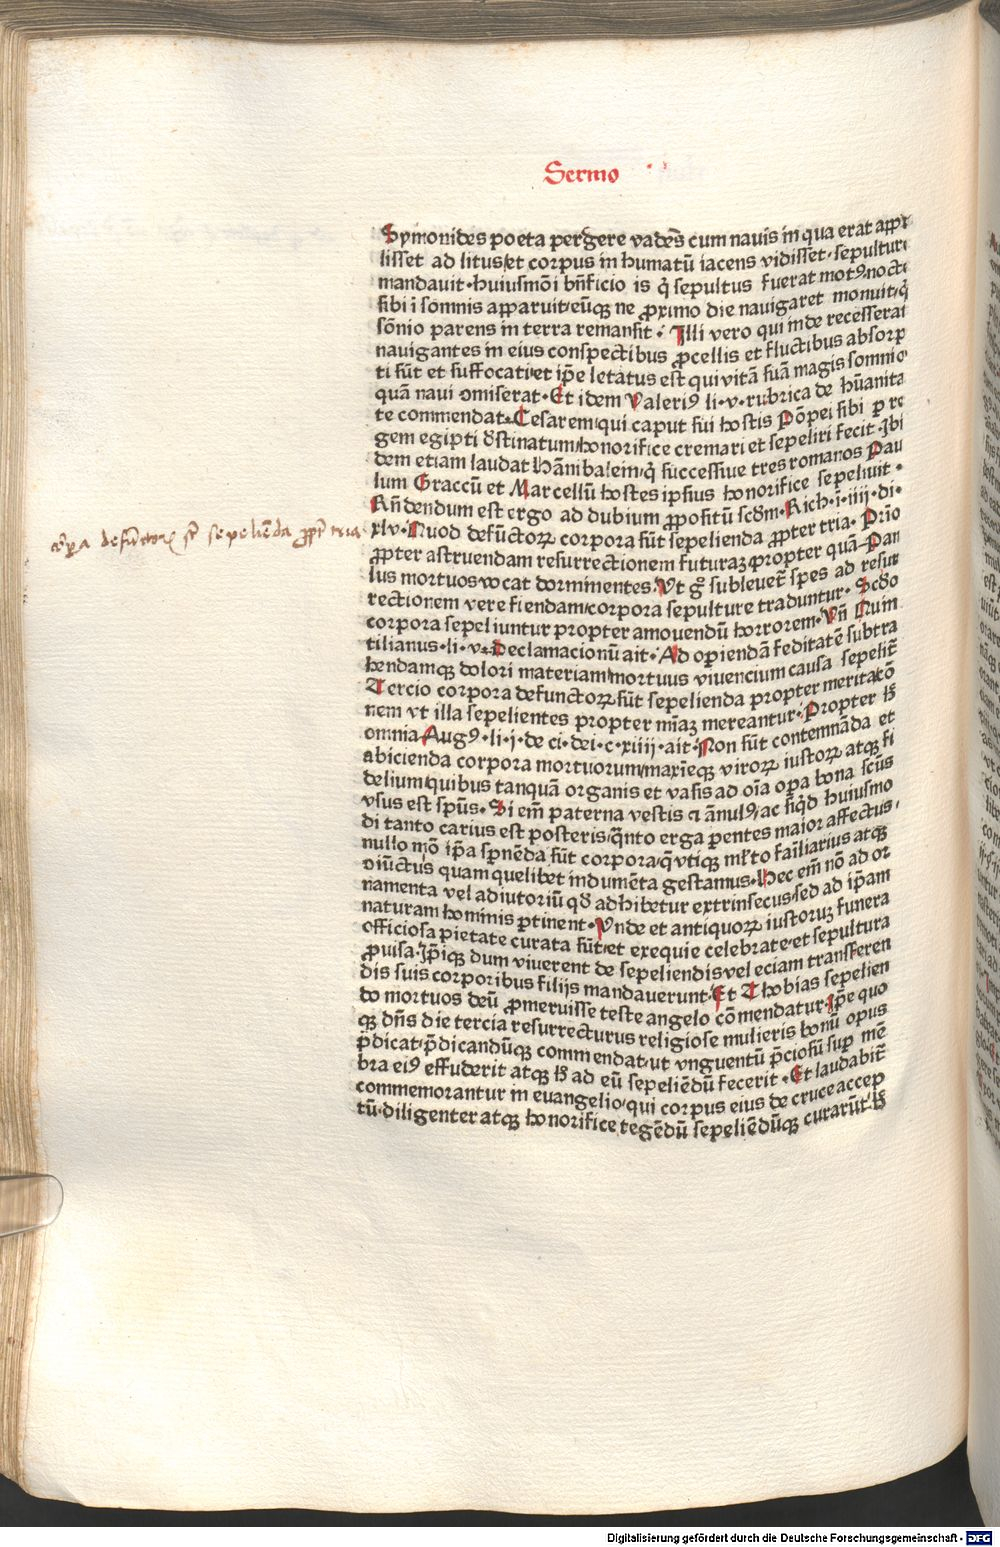 Sermo
Symonides poeta pergere vadēs cum nauis in qua erat appu
lisset ad litus/et corpus in humatū iacens vidisset, sepulture
mandauit. huiusmōi bn̄ficio is qͥ sepultus fuerat motꝰ, nocte
sibi ī somnis apparuit/eūqꝫ ne ꝓximo die nauigaret monuit/qͥ
sōnio parens in terra remansit. Illi vero qui inde recesserāt
nauigantes in eius conspectibus ꝓcellis et fluctibus absorp
ti sūt et suffocati/et ip̄e letatus est qui vitā suā magis somnio
quā naui omiserat. Et idem Valeriꝰ li. v. rubrica de hūanita
te commendat. Cesarem/qui caput sui hostis Pōpei sibi ꝑ re
gem egipti dr̄stinatum/honorifice cremari et sepeliri fecit. Ibi
dem etiam laudat Hānibalem/qͥ successiue tres romanos Pau
lum Graccū et Marcellū hostes ipsius honorifice sepeliuit.
Rn̄dendum est ergo ad dubium ꝓpositū scd̄m. Rich. ī. iiii. di.
xlv. Quod defūctoꝝ corpora sūt sepelienda ꝓpter tria. Prīo
ꝓpter astruendam resurrectionem futuraꝫ propter quā Pau
lus mortuos vocat dormientes. Vt gͦ subleuet̄ spes ad resur
rectionem vere fiendam/corpora sepulture traduntur. Scd̄o
corpora sepeliuntur propter amouendū horrorem. Vn̄ Quin
tilianus. li. v. Declamacionū ait. Ad operiendā feditatē subtra
hendamqꝫ dolori materiam/mortuus viuencium causa sepelit̄
Tercio corpora defunctoꝝ sūt sepelienda propter meritatō
nem vt illa sepelientes propter mīaꝫ mereantur. Propter hꝫ
omnia Augꝰ. li. j. de ci. dei. c. xiiij. ait. Non sūt contemnāda et
abicienda corpora mortuorum/maxīeqꝫ viroꝝ iustoꝝ atqꝫ fi
delium/quibus tanquā organis et vasis ad oīa oꝑa bona scūs
vsus est sp̄us. Si em̄ paterna vestis et ānulꝰ/ac siqͥd huiusmo
di tanto carius est posteris/qͣnto erga ꝑentes maior affectus,
nullo mō ip̄a spernēda sūt corpora/qͣ vtiqꝫ ml̄to faīliarius atqꝫ
oiūctus quam quelibet indumēta gestamus. Hec em̄ nō ad or
namenta vel adiutoriū qd̄ adhibetur extrinsecus/sed ad ip̄am
naturam hominis ꝑtinent. Vnde et antiquoꝝ iustoruꝫ funera
officiosa pietate curata sūt/et exequie celebrate/et sepultura
ꝓuisa. Ip̄iqꝫ dum viuerent de sepeliendis vel eciam transferen
dis suis corporibus filijs mandauerunt. Et Thobias sepelien
do mortuos deū ꝓmeruisse teste angelo cōmendatur. Ip̄e quo
qꝫ dn̄s die tercia resurrecturus religiose mulieris bonū opus
p̄dicat/p̄dicandūqꝫ commendat/vt vnguentū p̄ciosū suꝑ mē
bra eiꝰ effuderit atqꝫ hꝫ ad eū sepeliēdū fecerit. Et laudabit̄
commemorantur in euangelio/qui corpus eius de cruce accep
tū. diligenter atqꝫ honorifice tegēdū sepeliēdūqꝫ curarūt. hꝫ
corꝑa defūctorꝫ sūt sepeliēda ꝓpt̄ tria
Digitalisierung gefördert durch die Deutsche Forschungsgemeinschaft - DFG